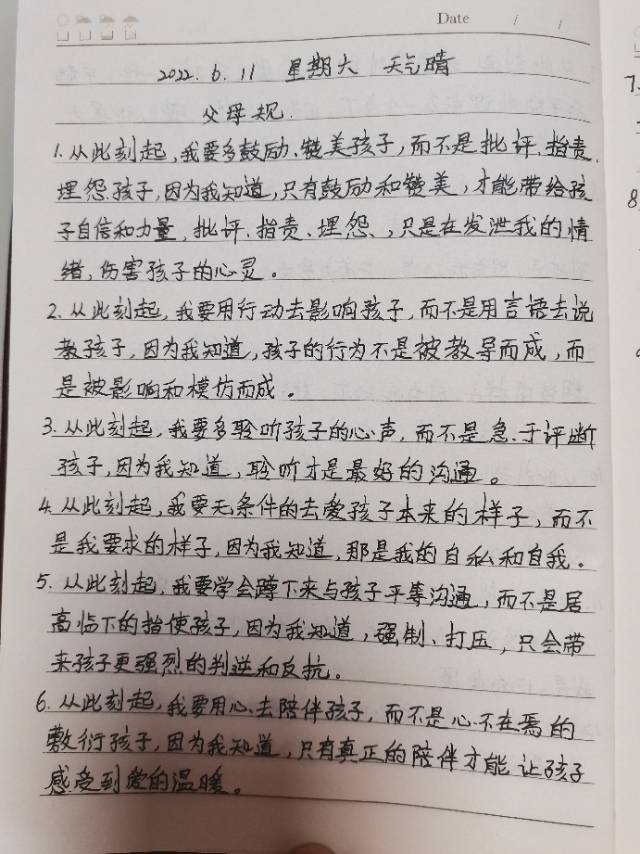 Date / /
2022.6.11 星期六 天气晴
父母规.
1.从此刻起,我要多鼓励、赞美孩子,而不是批评、指责、
埋怨孩子,因为我知道,只有鼓励和赞美,才能带给孩
子自信和力量,批评、指责、埋怨、,只是在发泄我的情
绪,伤害孩子的心灵。
2.从此刻起,我要用行动去影响孩子,而不是用言语去说
教孩子,因为我知道,孩子的行为不是被教导而成,而
是被影响和模仿而成。
3.从此刻起,我要多聆听孩子的心声,而不是急于评断
孩子,因为我知道,聆听才是最好的沟通。
4.从此刻起,我要无条件的去爱孩子本来的样子,而不
是我要求的样子,因为我知道,那是我的自私和自我。
5.从此刻起,我要学会蹲下来与孩子平等沟通,而不是居
高临下的指使孩子,因为我知道,强制、打压,只会带
来孩子更强烈的判逆和反抗。
6.从此刻起,我要用心去陪伴孩子,而不是心不在焉的
敷衍孩子,因为我知道,只有真正的陪伴才能让孩子
感受到爱的温暖。
7.
8.